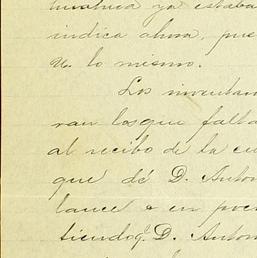 ya estaba
indica ahora, pue
U. lo mismo.
Los inventar
ran los que falta
al recibo de la cu
que dé D. Anton
lance o en poc
tiendoq.e D. Anton